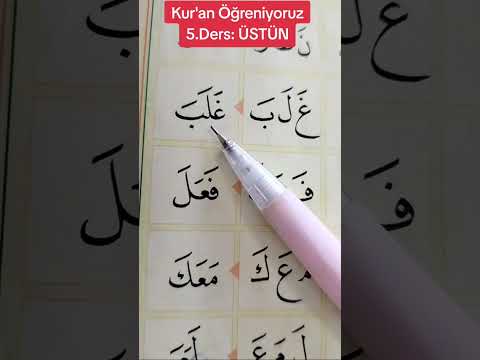 Kur'an Öğreniyoruz
5.Ders: ÜSTÜN
غَ لَ بَ غَلَبَ
فَعَلَ
عَ كَ مَعَكَ
لَ مَ عَ